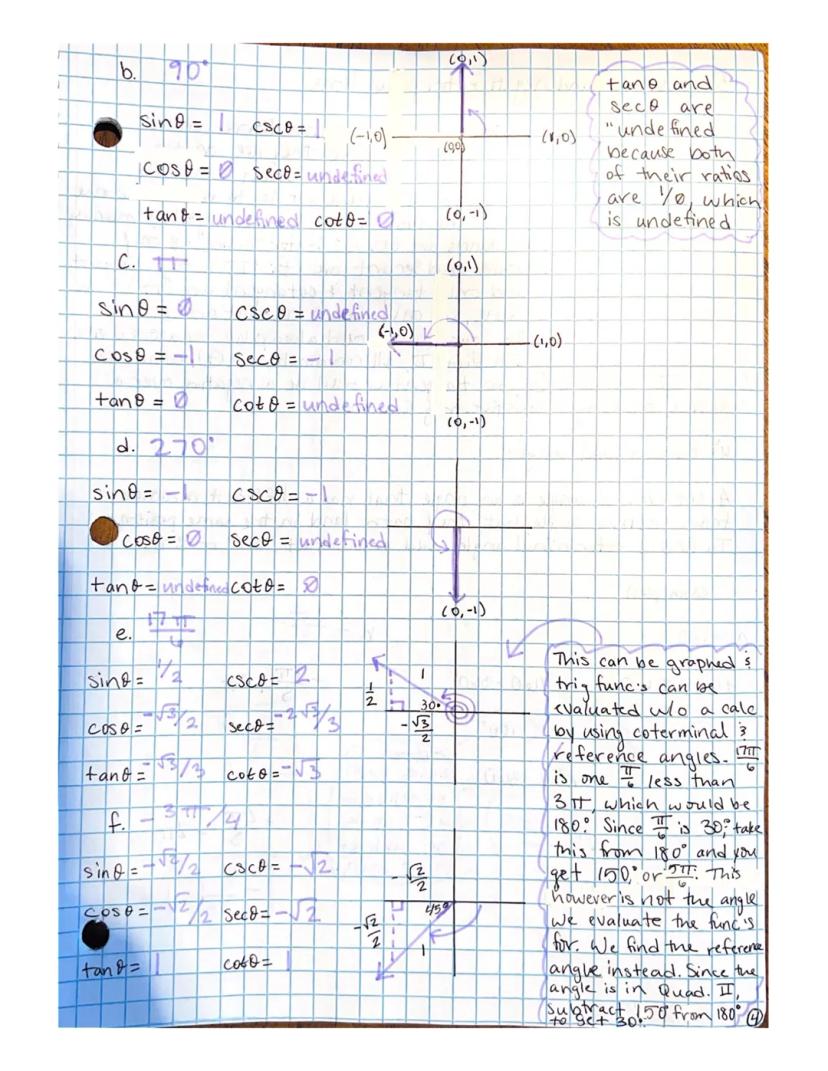 b. 90°
(0,1)
sinθ = 1 cscθ = 1
(-1,0) (1,0)
(0,0)
cosθ = 0 secθ = undefined
tanθ = undefined cotθ = 0
(0,-1)
tanθ and
secθ are
"undefined
because both
of their ratios
are 1/0, which
is undefined
c. π
(0,1)
sinθ = 0 cscθ = undefined
(-1,0) (1,0)
cosθ = -1 secθ = -1
tanθ = 0 cotθ = undefined
(0,-1)
d. 270°
sinθ = -1 cscθ = -1
cosθ = 0 secθ = undefined
tanθ = undefined cotθ = 0
(0,-1)
e. 17π/
sinθ = 1/2 cscθ = 2
1
1/2 30°
-√3/2
cosθ = -√3/2 secθ = -2√3/3
tanθ = -√3/3 cotθ = -√3
This can be graphed &
trig func's can be
evaluated w/o a calc
by using coterminal &
reference angles. 17π/6
is one π/6 less than
3π, which would be
180°. Since π/6 is 30°, take
this from 180° and you
get 150°, or 5π/6. This
however is not the angle
we evaluate the func's
for. We find the reference
angle instead. Since the
angle is in Quad. II,
subtract 150° from 180°
to get 30°.
f. -3π/4
sinθ = -√2/2 cscθ = -√2
-√2/2
cosθ = -√2/2 secθ = -√2
45°
-√2/2
1
tanθ = 1 cotθ = 1
4